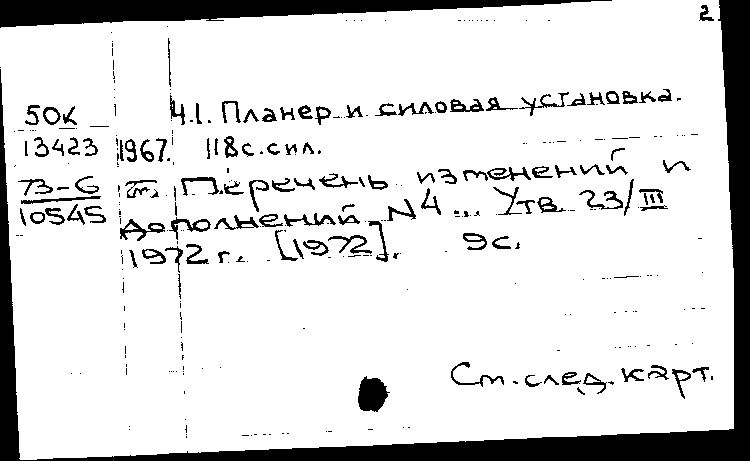 2
50К Ч.1. Планер и силовая установка.
13423 1967. 118 с. сил.
73-6 Перечень изменений и
10545 дополнений N4... Утв. 23/III
1972 г. [1972]. 9 с.
См. след. карт.